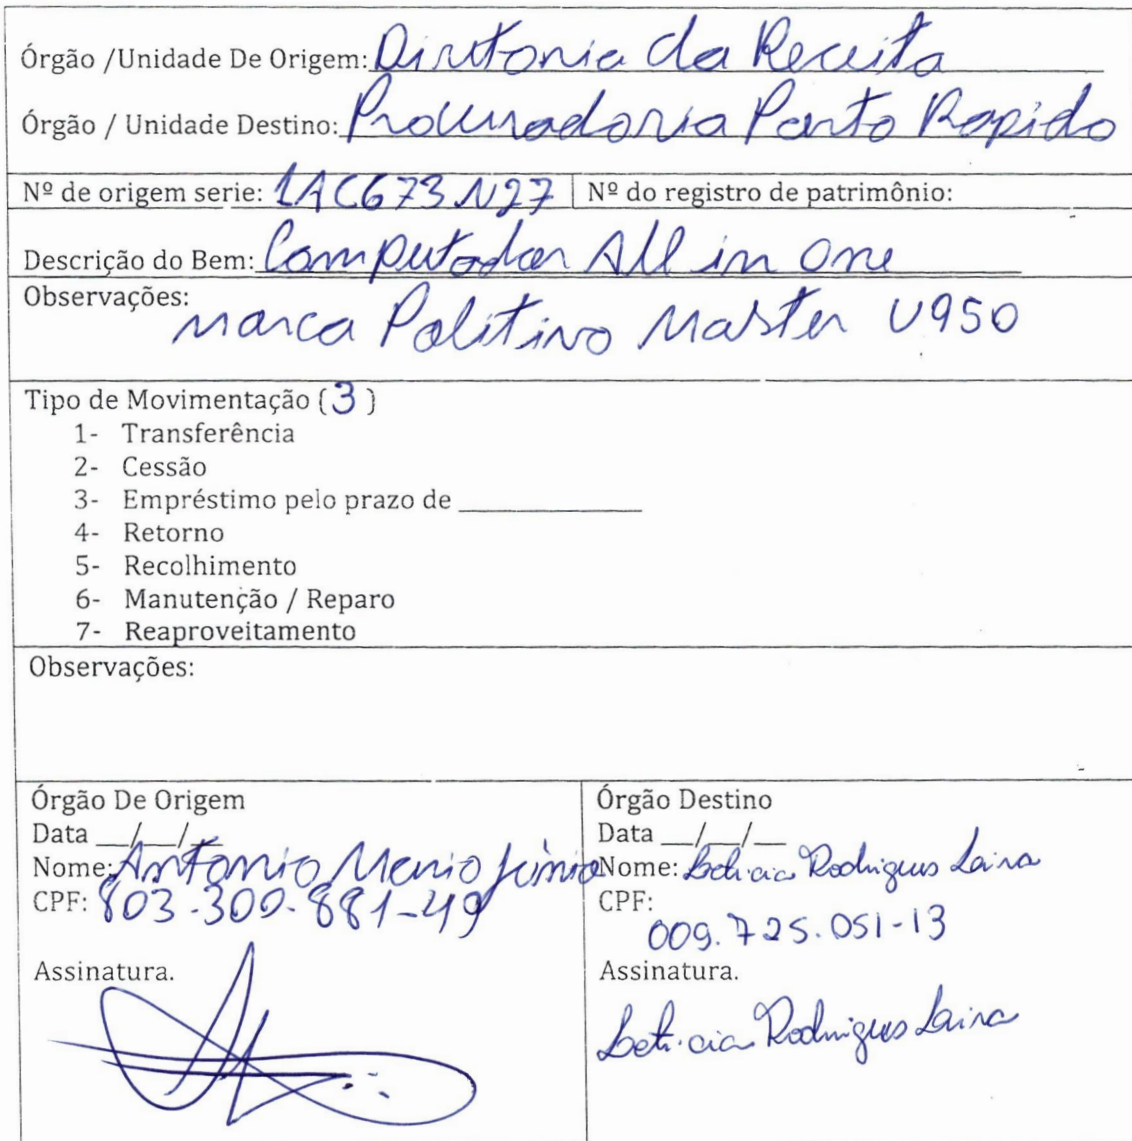 Órgão /Unidade De Origem: Diretoria da Receita
Órgão / Unidade Destino: Procuradoria Ponto Rapido
Nº de origem serie: 1AC673N27 Nº do registro de patrimônio:
Descrição do Bem: Computador All in One
Observações:
Marca Positivo Master U950
Tipo de Movimentação (3)
1- Transferência
2- Cessão
3- Empréstimo pelo prazo de ______________
4- Retorno
5- Recolhimento
6- Manutenção / Reparo
7- Reaproveitamento
Observações:
Órgão De Origem
Data __/__/__
Nome: Antonio Junio
CPF: 803-300-881-49
Assinatura.
Órgão Destino
Data __/__/__
Nome: Leticia Rodrigues
CPF:
009.725.051-13
Assinatura.
Leticia Rodrigues